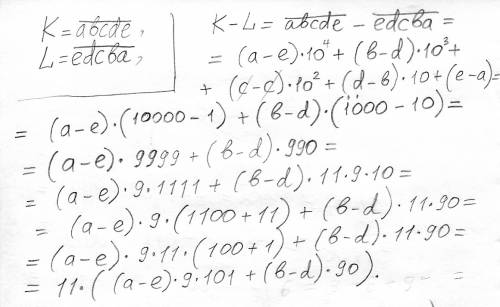 K = \overline{abcde},
L = \overline{edcba},
K - L = \overline{abcde} - \overline{edcba} =
= (a-e)·10^4 + (b-d)·10^3 +
+ (c-c)·10^2 + (d-b)·10 + (e-a) =
= (a-e)·(10000-1) + (b-d)·(1000-10) =
= (a-e)·9999 + (b-d)·990 =
= (a-e)·9·1111 + (b-d)·11·9·10 =
= (a-e)·9·(1100+11) + (b-d)·11·90 =
= (a-e)·9·11·(100+1) + (b-d)·11·90 =
= 11·((a-e)·9·101 + (b-d)·90).